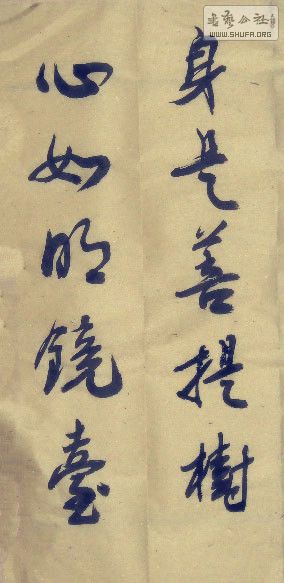 書藝公社
WWW.SHUFA.ORG
身是善提樹
心如明鏡臺